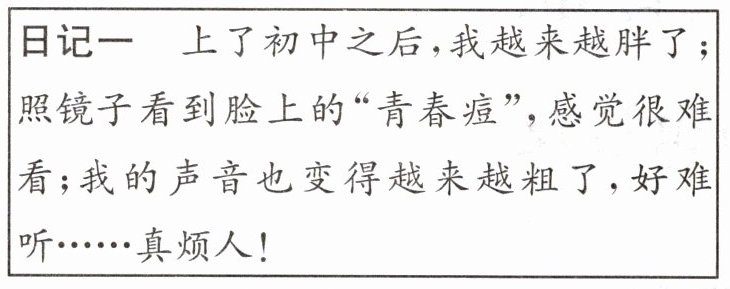 日记一　上了初中之后,我越来越胖了;
照镜子看到脸上的“青春痘”,感觉很难
看;我的声音也变得越来越粗了,好难
听……真烦人!